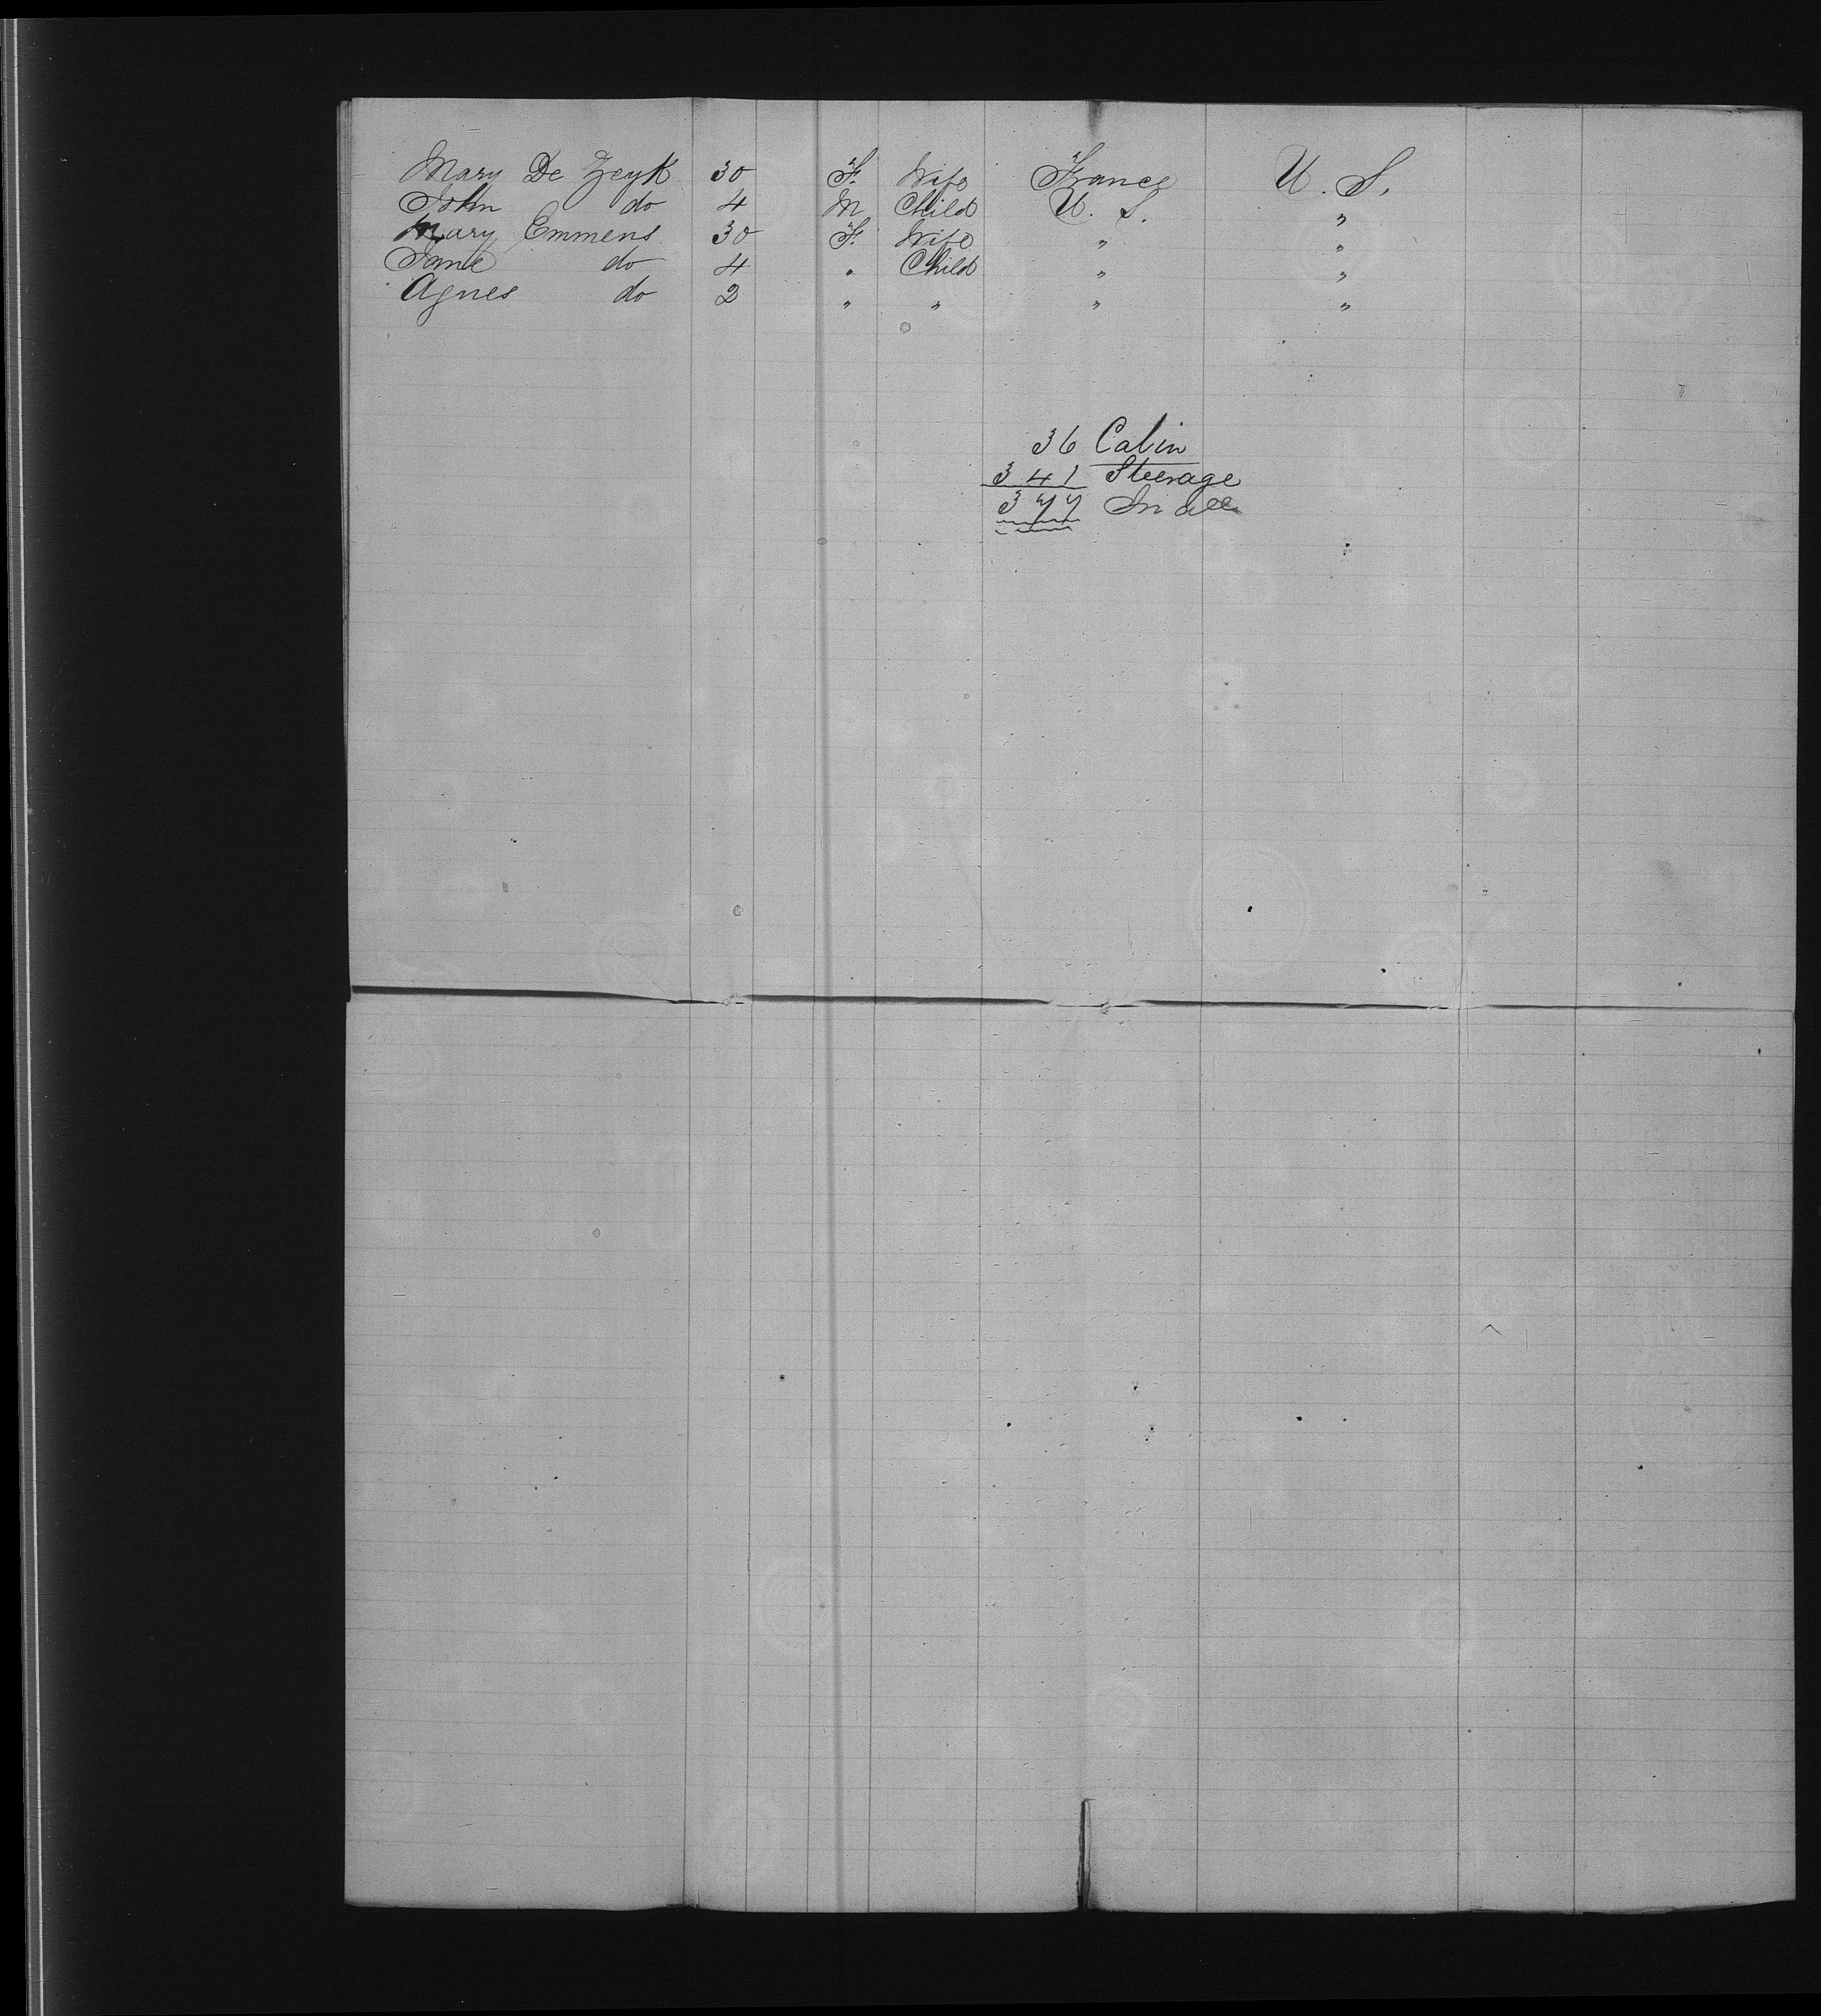 Mary De Zeyk 30 F. Wife France U. S.
John do 4 M Child U. S. "
Mary Emmens 30 F. Wife " "
Jane do 4 " Child " "
Agnes do 2 " " " "
36 Cabin
341 Steerage
377 In all